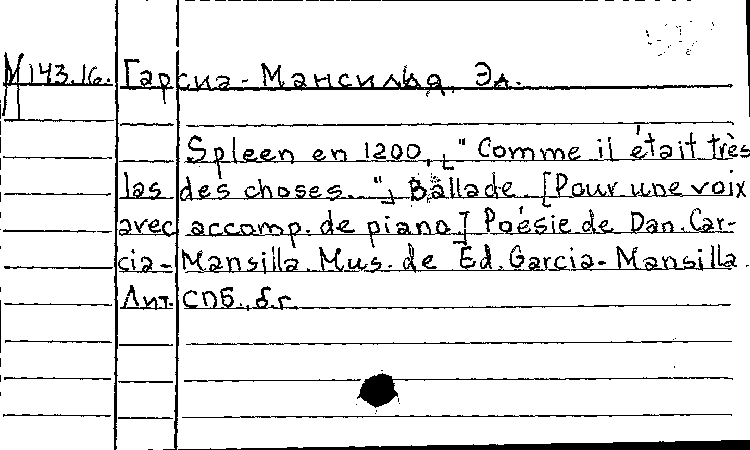 М 143.16. Гарсиа-Мансилья, Эд.
Spleen en 1200, „"Comme il était très
las des choses.."„ Ballade. [Pour une voix
avec accomp. de piano] Poésie de Dan. Car-
cia-Mansilla. Mus. de Ed. Garcia-Mansilla.
Лит. СПБ., б.г.